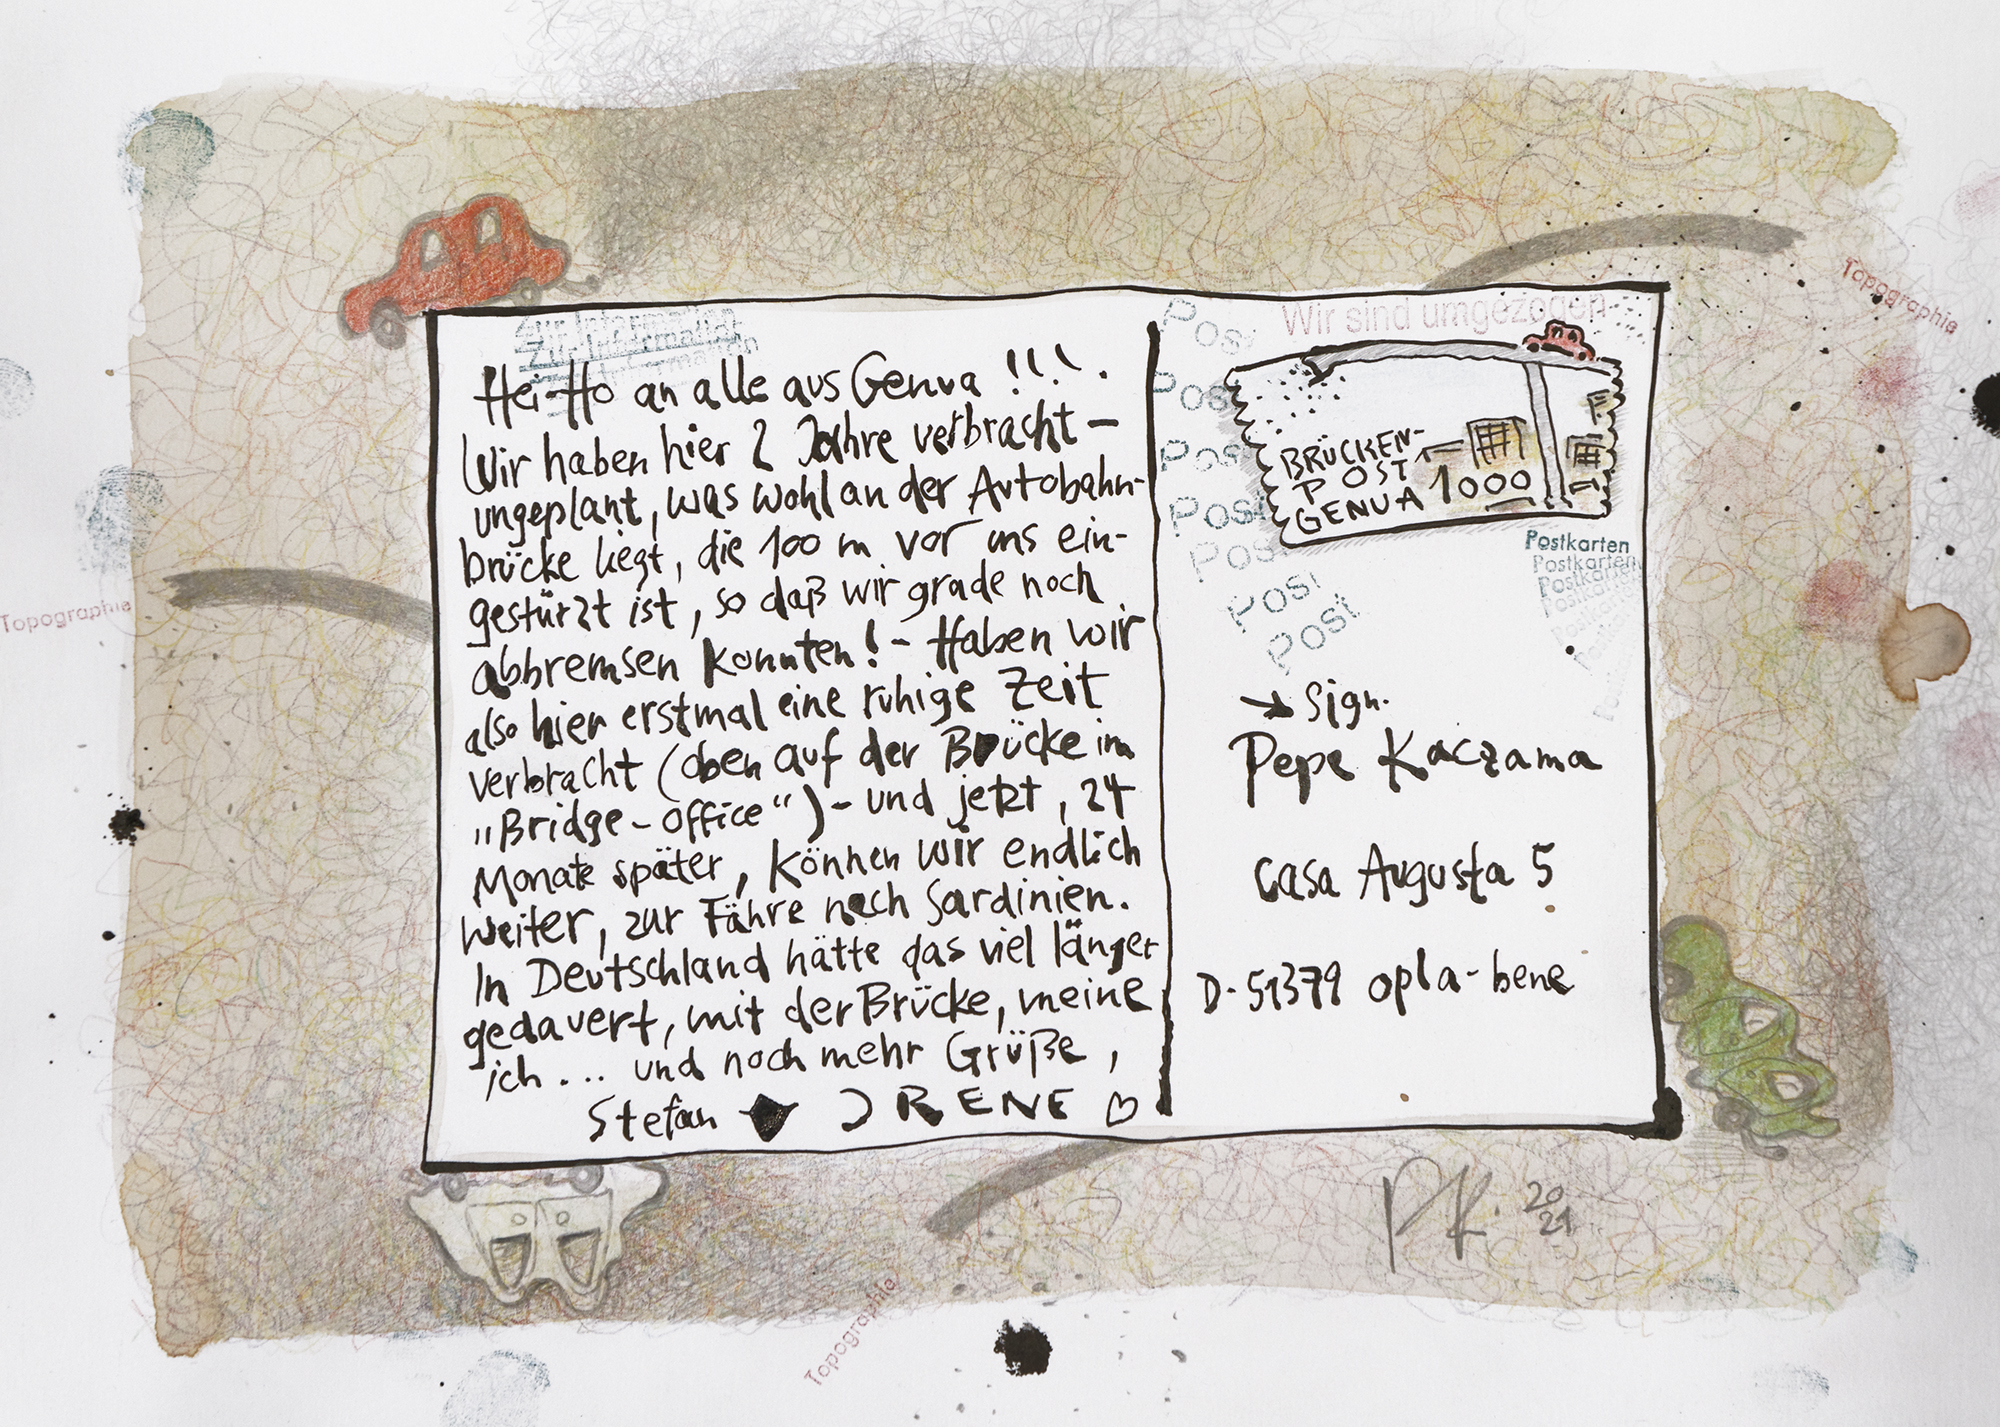 Zur Information
Zur Information
Hei-Ho an alle aus Genua!!!.
Wir haben hier 2 Jahre verbracht –
ungeplant, was wohl an der Autobahn-
brücke liegt, die 100 m vor uns ein-
gestürzt ist, so daß wir grade noch
abbremsen konnten! – Haben wir
also hier erstmal eine ruhige Zeit
verbracht (oben auf der Brücke im
„Bridge-office“) – und jetzt, 24
Monate später, können wir endlich
weiter, zur Fähre nach Sardinien.
In Deutschland hätte das viel länger
gedauert, mit der Brücke, meine
ich... und noch mehr Grüße,
Stefan IRENE
Wir sind umgezogen
Post
Post
Post
Post
Post
Post
Post
BRÜCKEN-
POST
GENUA 1000
Postkarten
Postkarten
Postkarten
Postkarten
Postkarten
→ Sign.
Pepe Kaczama
casa Augusta 5
D-51379 opla-bene
PK. 20
21
Topographie
Topographie
Topographie